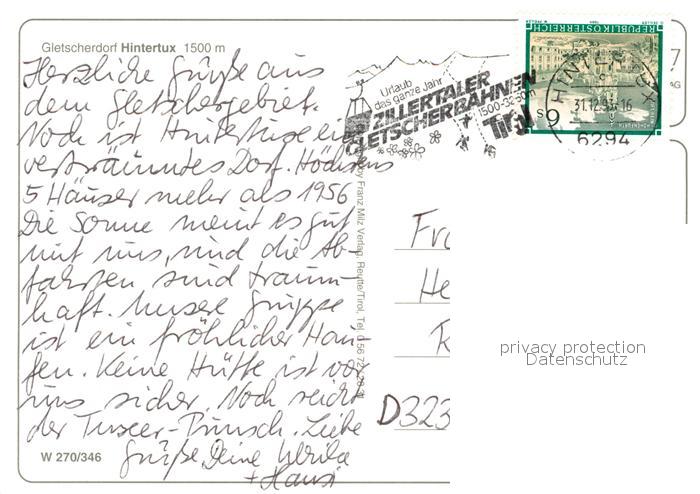 Gletscherdorf Hintertux 1500 m
Herzliche Grüße aus
dem Gletschergebiet.
Noch ist Hintertux ein
verträumtes Dorf. Höchstens
5 Häuser mehr als 1956
Die Sonne meint es gut
mit uns, und die Ab-
fahrten sind traum-
haft. Unsere Gruppe
ist ein fröhlicher Hau-
fen. Keine Hütte ist vor
uns sicher. Noch reicht
der Tuxer-Punsch. Liebe
Grüße, Deine Ulrike
+ Hansi
W 270/346
by Franz Milz Verlag, Reutte/Tirol, Tel. 0 56 72
Urlaub
das ganze Jahr
ZILLERTALER
GLETSCHERBAHNEN
1500-3250m
Tirol
REPUBLIK ÖSTERREICH
S 6
31.12.93-16
6294
7
AG
Fr
He
R
D323
privacy protection
Datenschutz